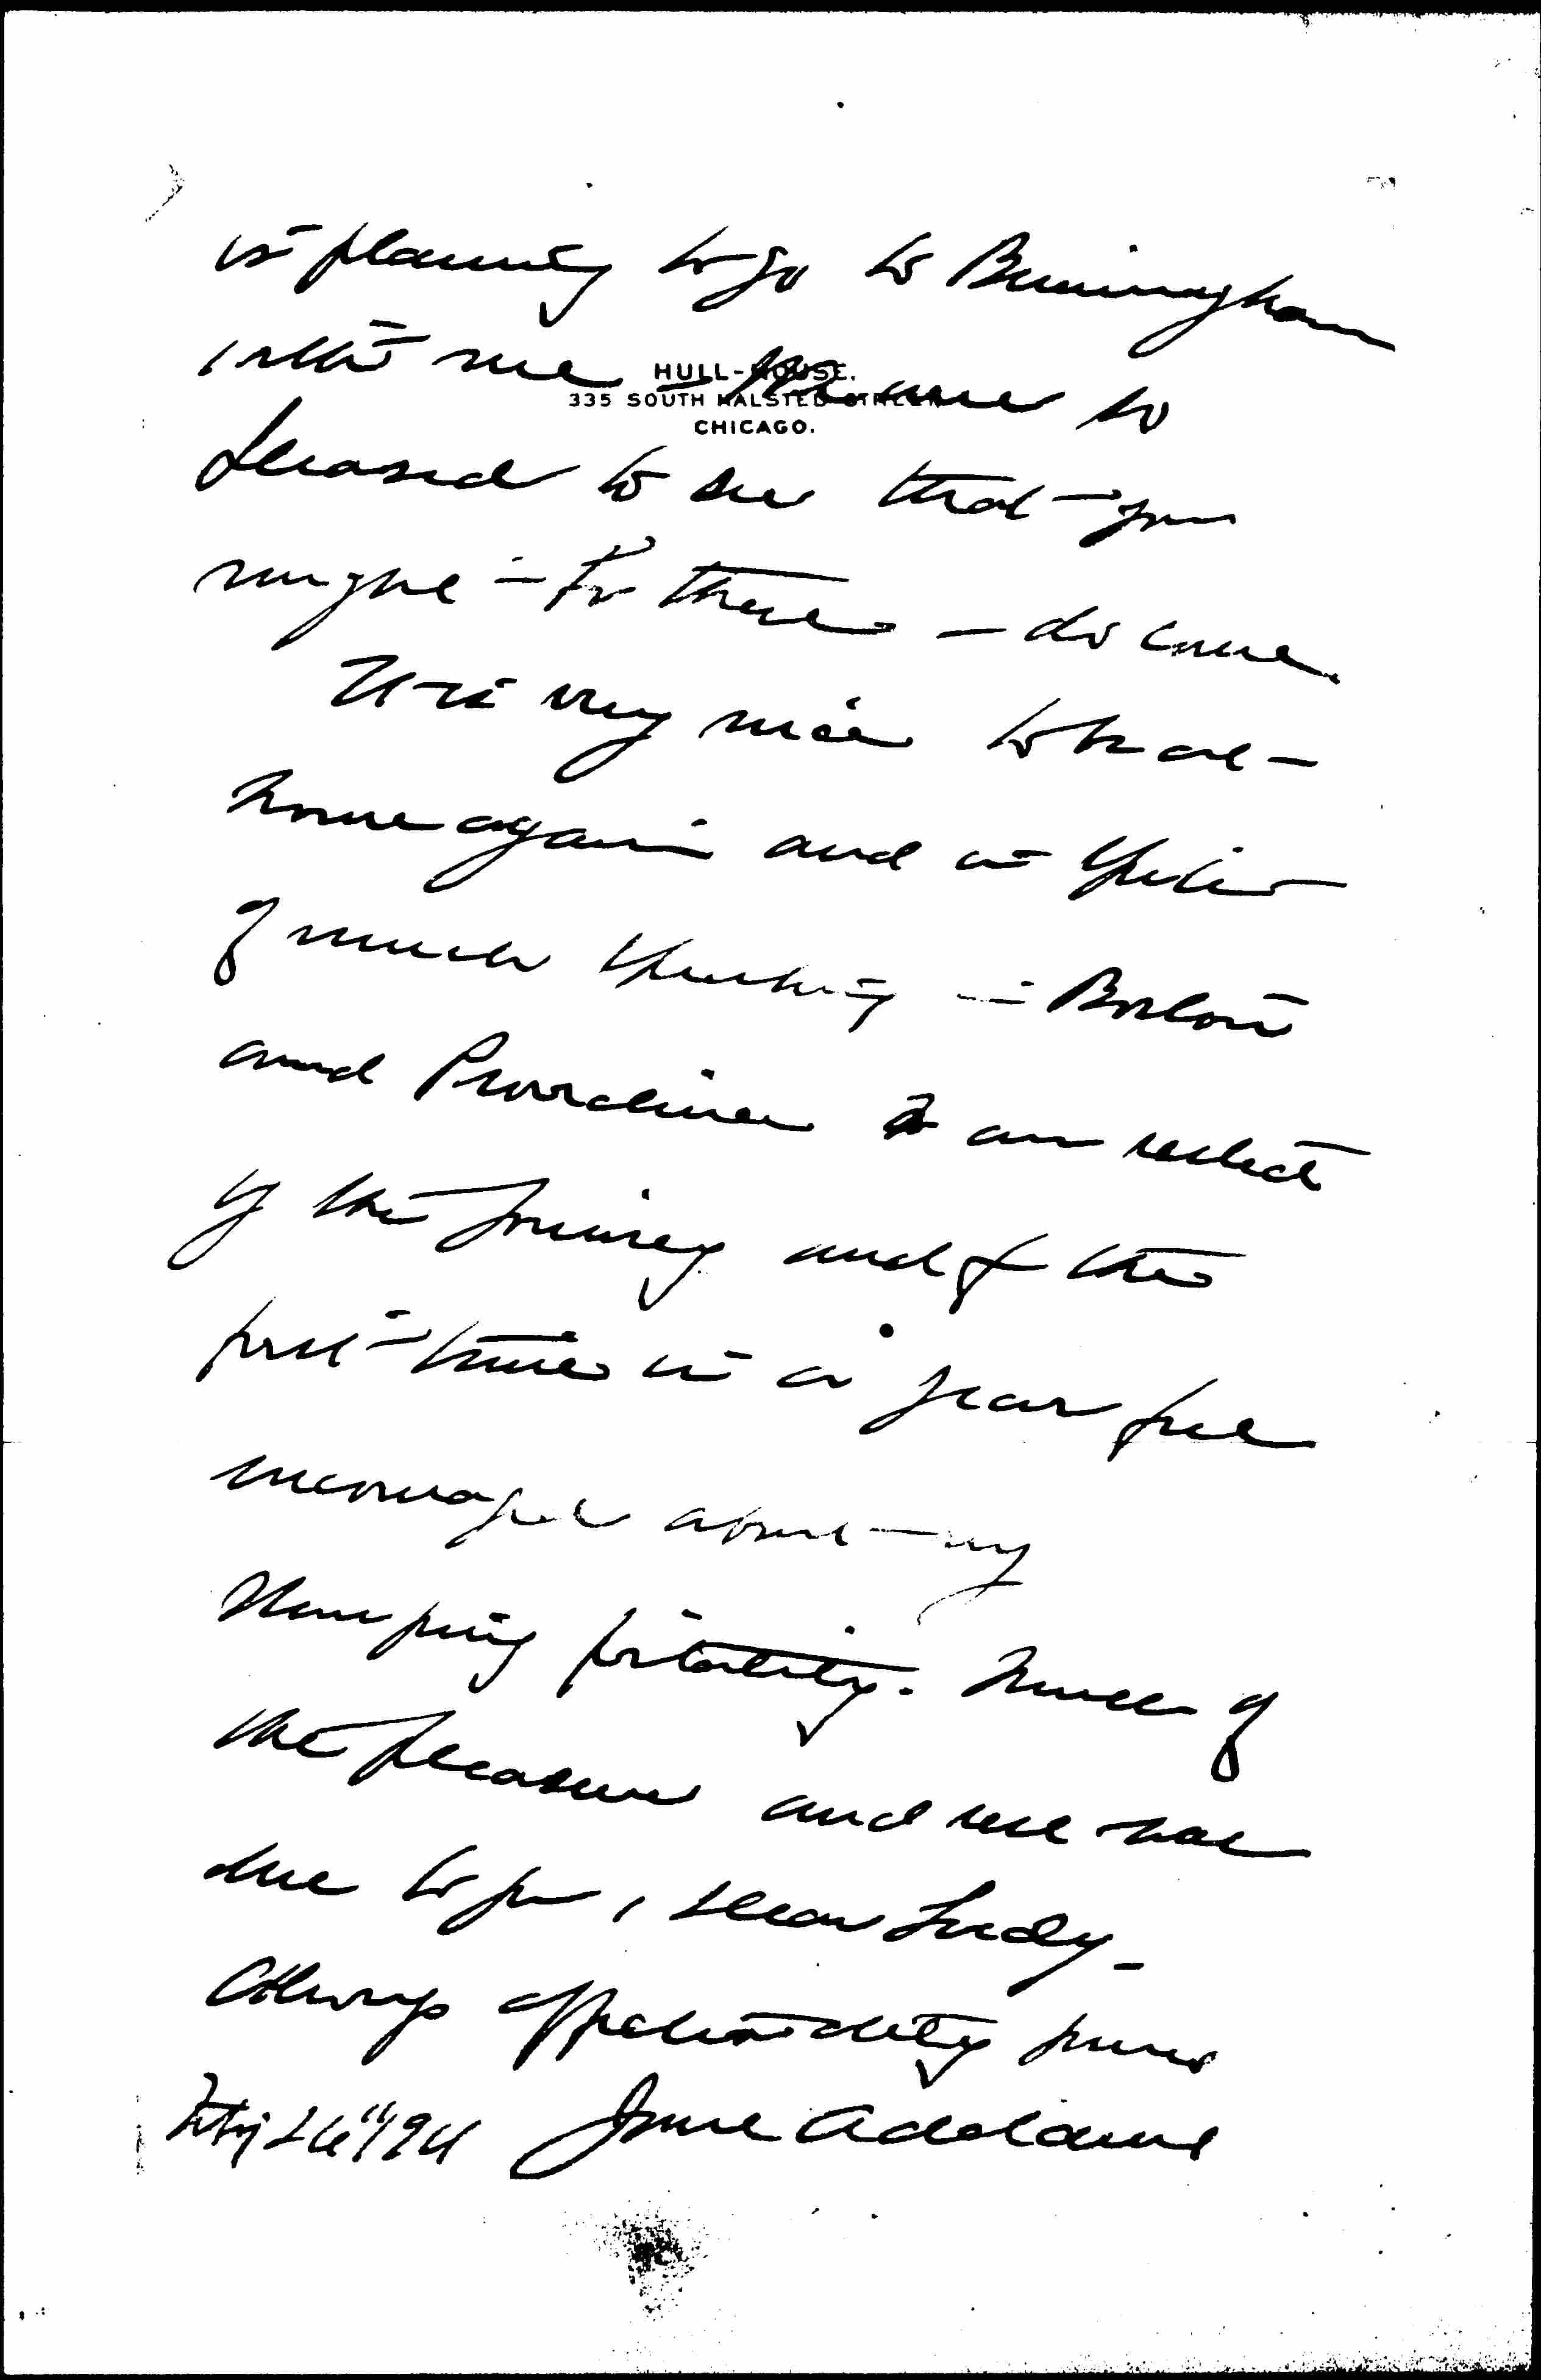 is planning to go to Birmingham
HULL-HOUSE.
335 SOUTH HALSTED STREET
CHICAGO.
with me — We are so
pleased to see that you
might be there — do come.
It is very nice to be at
home again and in spite
of much speaking in Boston
and Providence I am rested
by the journey and for the
first time in a year feel
encouraged about my
slumping vitality. Much of
the pleasure and rest was
due to you, dear lady —
Always affectionately yours
Jane Addams